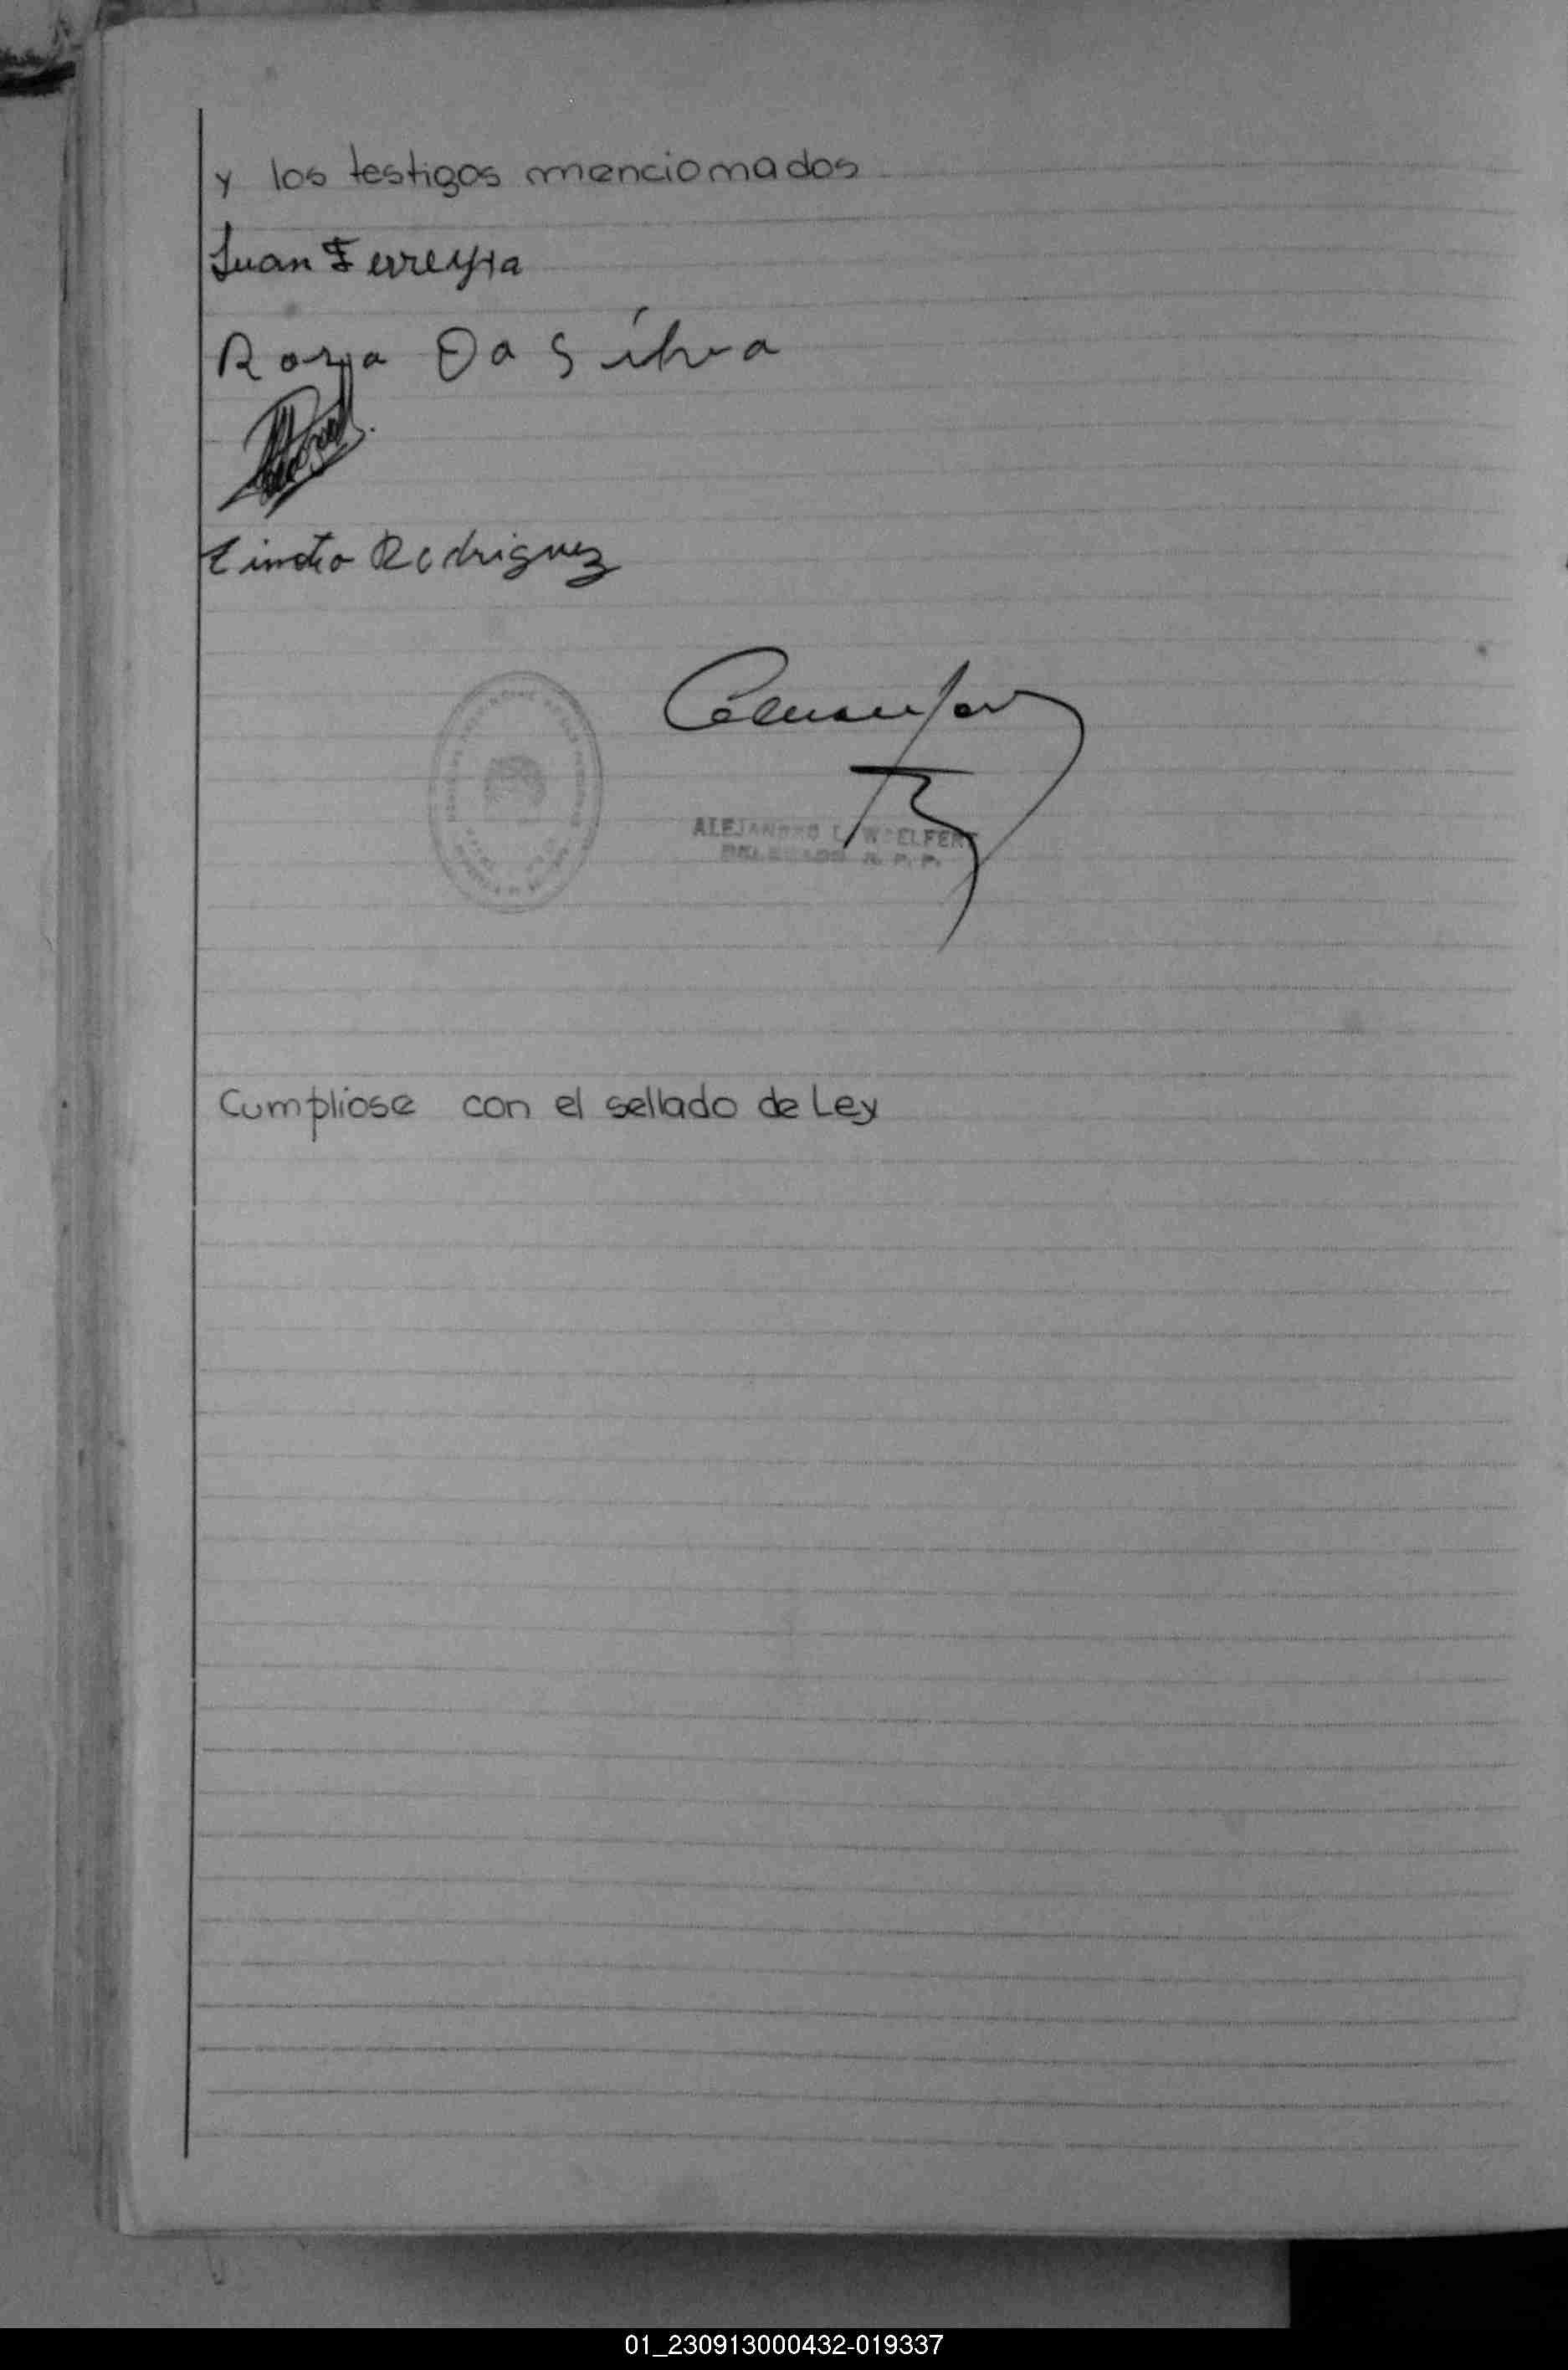 y los testigos mencionados
Juan Ferreyra
Rosa Da Silva
Rodriguez
ALEJANDRO L. WOELFERT
DELEGADO R. P. P.
Cumpliose con el sellado de Ley
01_230913000432-019337